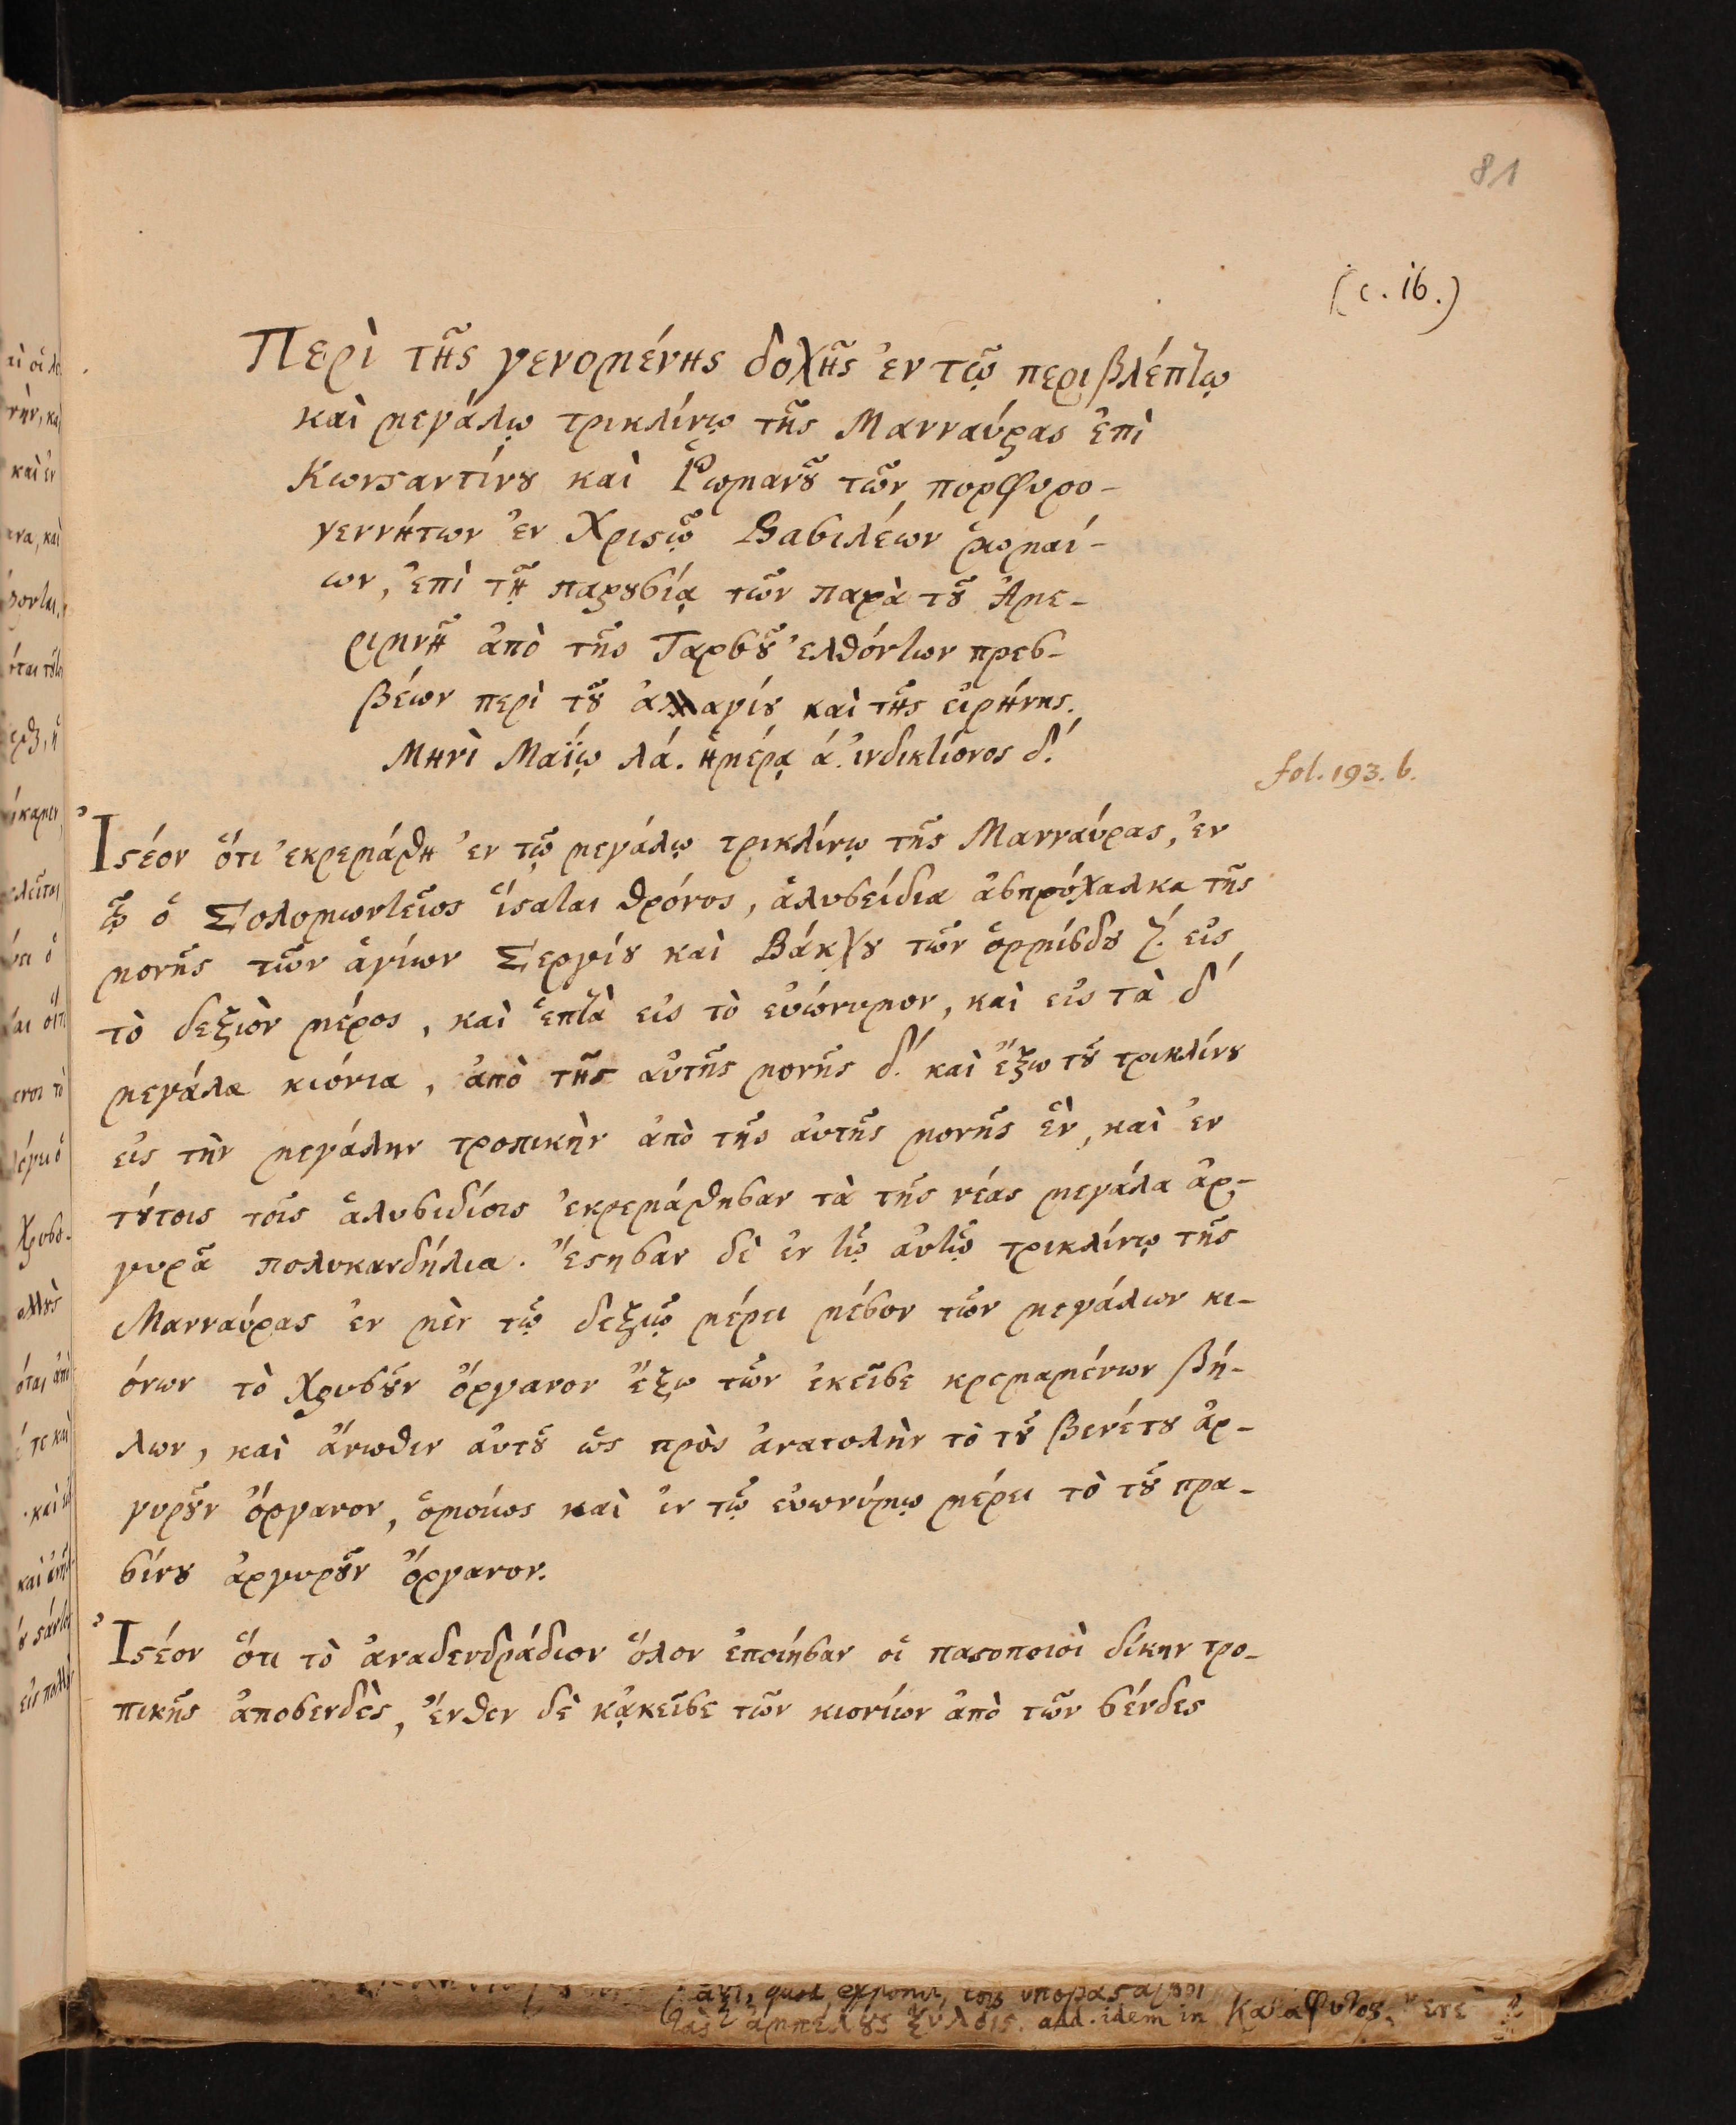 81
(c. 16.)
Περὶ τῆς γενομένης δοχῆς ἐν τῷ περιβλέπτῳ
καὶ μεγάλῳ τρικλίνῳ τῆς Μανναύρας ἐπὶ
Κωνϛαντίνȣ καὶ Ῥωμανȣ͂ τῶν πορφυρο-
γεννήτων ἐν Χριϛῷ Βασιλέων ῥωμαί-
ων, ἐπὶ τῇ παρȣσίᾳ τῶν παρὰ τȣ͂ Ἀμε-
ριμνῆ ἀπὸ τῆς Ταρσȣ͂ ἐλθόντων πρεσ-
βέων περὶ τȣ͂ ἀλλαγίȣ καὶ τῆς εἰρήνης.
Μηνὶ Μαΐῳ λά. ἡμέρᾳ ά. ἰνδικτίονος δ.́
fol. 193. b.
Ἰϛέον ὅτι ἐκρεμάθη ἐν τῷ μεγάλῳ τρικλίνῳ τῆς Μανναύρας, ἐν
ᾧ ὁ Σολομωντεῖος ἵϛαται θρόνος, ἁλυσείδια ἀσπρόχαλκα τῆς
μονῆς τῶν ἁγίων Σεργίȣ καὶ Βάκχȣ τῶν ὁρμίσδȣ ζ.́ εἰς
τὸ δεξιὸν μέρος, καὶ ἑπτὰ εἰς τὸ εὐώνυμον, καὶ εἰς τὰ δ́
μεγάλα κιόνια, ἀπὸ τῆς αὐτῆς μονῆς δ.́ καὶ ἔξω τȣ͂ τρικλίνȣ
εἰς τὴν μεγάλην τροπικὴν ἀπὸ τῆς αὐτῆς μονῆς ἓν, καὶ ἐν
τȣ́τοις τοῖς ἁλυσιδίοις ἐκρεμάθησαν τὰ τῆς νέας μεγάλα ἀρ-
γυρᾶ πολυκανδήλια. Ἔϛησαν δὲ ἐν τῷ αὐτῷ τρικλίνῳ τῆς
Μανναύρας ἐν μὲν τῷ δεξιῷ μέρει μέσον τῶν μεγάλων κι-
όνων τὸ χρυσȣ͂ν ὄργανον ἔξω τῶν ἐκεῖσε κρεμαμένων βή-
λων, καὶ ἄνωθεν αὐτȣ͂ ὡς πρὸς ἀνατολὴν τὸ τȣ͂ βενέτȣ ἀρ-
γυρȣ͂ν ὄργανον, ὁμοίως καὶ ἐν τῷ εὐωνύμῳ μέρει τὸ τȣ͂ πρα-
σίνȣ ἀργυρȣ͂ν ὄργανον.
Ἰϛέον ὅτι τὸ ἀναδενδράδιον ὅλον ἐποίησαν οἱ παϛοποιοὶ δίκην τρο-
πικῆς ἀποσενδὲς, ἔνθεν δὲ κᾀκεῖσε τῶν κιονίων ἀπὸ τῶν σένδες